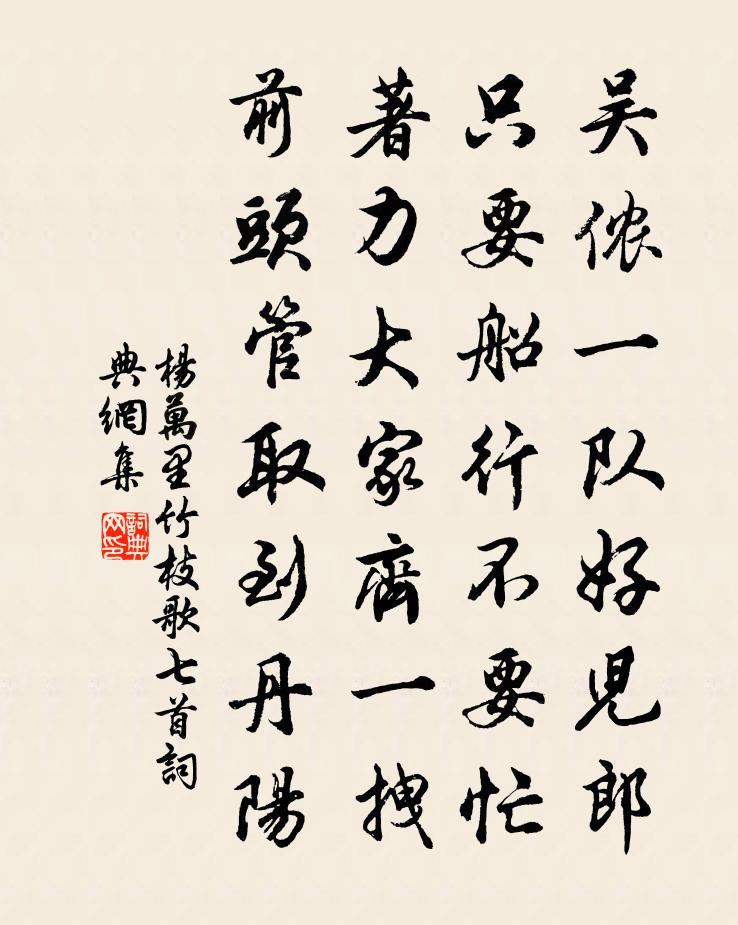 吴侬一队好児郎
只要船行不要忙
著力大家齊一拽
前頭管取到丹陽
楊萬里竹枝歌七首詞
典網集
詞典網印